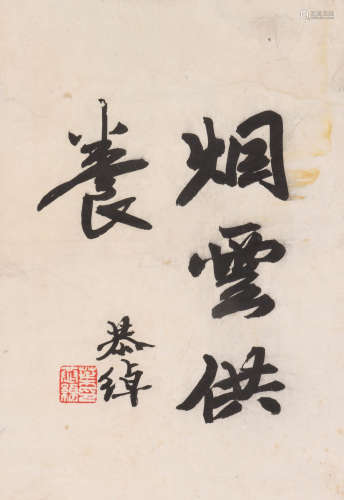 烟雲供
養
恭綽